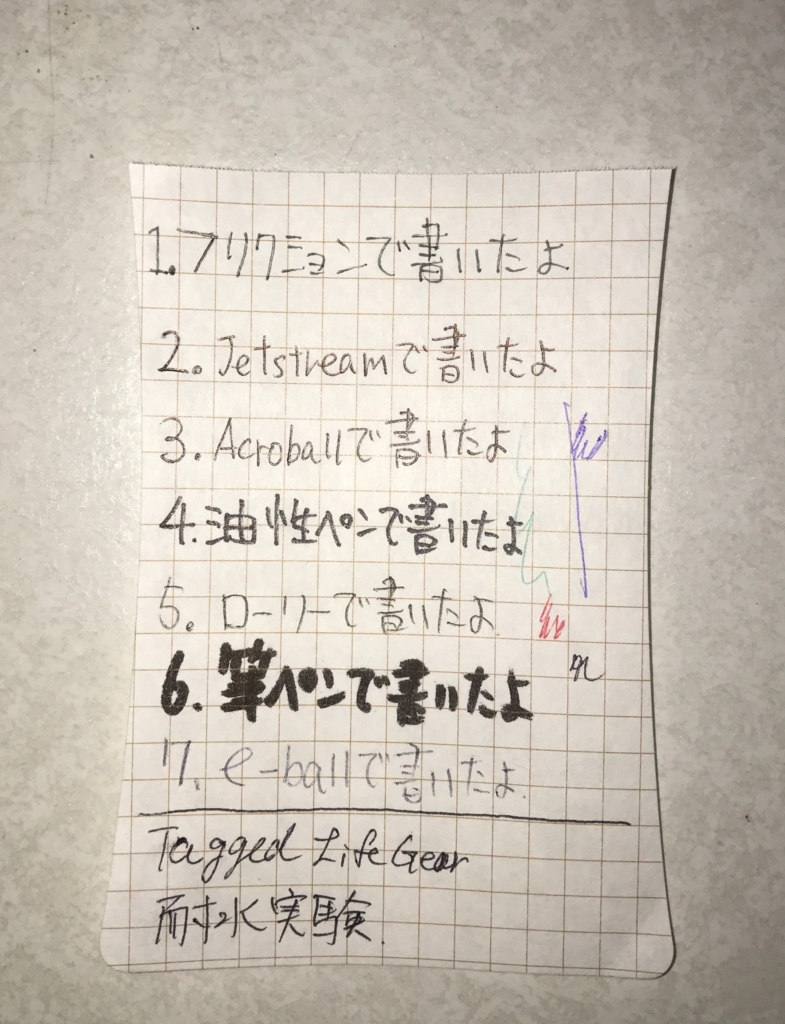 1.フリクションで書いたよ
2.Jetstreamで書いたよ
3.Acroballで書いたよ
4.油性ペンで書いたよ
5.ローリーで書いたよ
6.筆ペンで書いたよ
7.e-ballで書いたよ.
Tagged Life Gear
耐水実験.